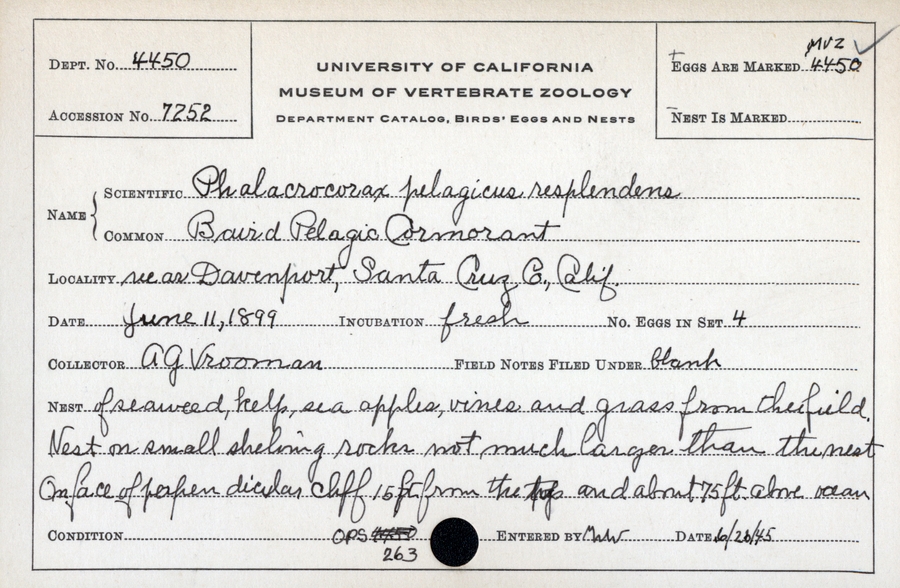 DEPT. NO. 4450
ACCESSION NO. 7252
UNIVERSITY OF CALIFORNIA
MUSEUM OF VERTEBRATE ZOOLOGY
DEPARTMENT CATALOG, BIRDS' EGGS AND NESTS
MVZ
+ EGGS ARE MARKED 4450
- NEST IS MARKED
NAME { SCIENTIFIC Phalacrocorax pelagicus resplendens
COMMON Baird Pelagic Cormorant
LOCALITY near Davenport, Santa Cruz Co., Calif.
DATE June 11, 1899 INCUBATION fresh NO. EGGS IN SET 4
COLLECTOR A G Vrooman FIELD NOTES FILED UNDER blank
NEST of seaweed, kelp, sea apples, vines and grass from the field.
Nest on small shelving rocks not much larger than the nest
On face of perpendicular cliff 15 ft from the top and about 75 ft. above ocean
CONDITION OPS 4450 ENTERED BY MWW DATE 6/26/45
263